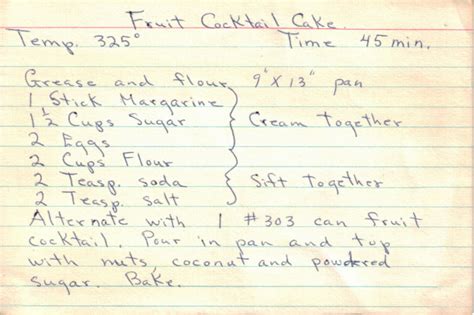 Fruit Cocktail Cake
Temp. 325° Time 45 min.
Grease and flour 9" X 13" pan
1 Stick Margarine
1 1/2 Cups Sugar Cream Together
2 Eggs
2 Cups Flour
2 Teasp. soda Sift Together
2 Teasp. salt
Alternate with 1 #303 can fruit
cocktail. Pour in pan and top
with nuts, coconut and powdered
sugar. Bake.